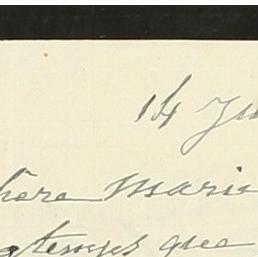 14 Ju
hère Marie
gtemps que